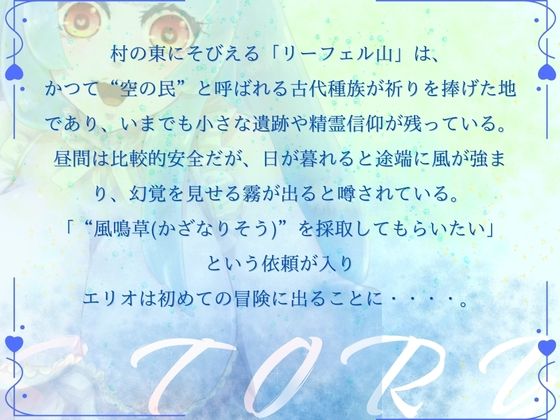 村の東にそびえる「リーフェル山」は、
かつて“空の民”と呼ばれる古代種族が祈りを捧げた地
であり、いまでも小さな遺跡や精霊信仰が残っている。
昼間は比較的安全だが、日が暮れると途端に風が強ま
り、幻覚を見せる霧が出ると噂されている。
「“風鳴草(かざなりそう)”を採取してもらいたい」
という依頼が入り
エリオは初めての冒険に出ることに・・・・。
STORY